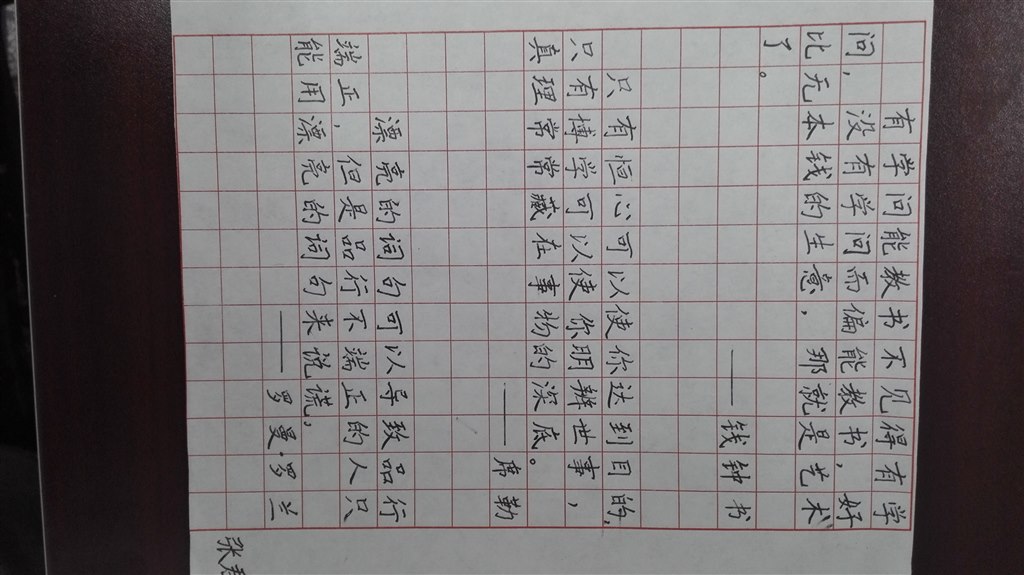 有学问能教书不见得有学
问，没有学问而偏能教书，好
比无本钱的生意，那就是艺术
了。
——钱钟书
只有恒心可以使你达到目的，
只有博学可以使你明辨世事，
真理常常藏在事物的深底。
——席勒
漂亮的词句可以导致品行
端正，但是品行不端正的人只
能用漂亮的词句来说谎，
——罗曼·罗兰
张